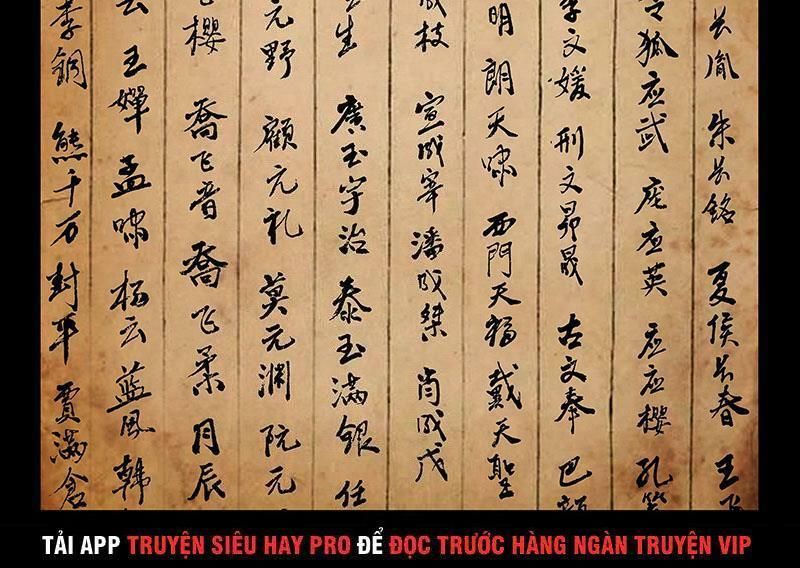 长胤 朱长铭 夏侯长春 王
令狐应武 庞应英 应应樱 孔
李文媛 刑文昴晟 古文奉 巴
明朗天啸 西門天福 戴天聖
成枝 宣成宰 潘成桀 肖成戊
生 廣玉宇治 泰玉满银 任
元野 顧元礼 莫元渊 阮元
飞樱 喬飞音 喬飞柔 月辰
云 王嬋 孟啸 杨云 藍凤 韩
李銅 熊千万 封平 賈满倉
TẢI APP TRUYỆN SIÊU HAY PRO ĐỂ ĐỌC TRƯỚC HÀNG NGÀN TRUYỆN VIP